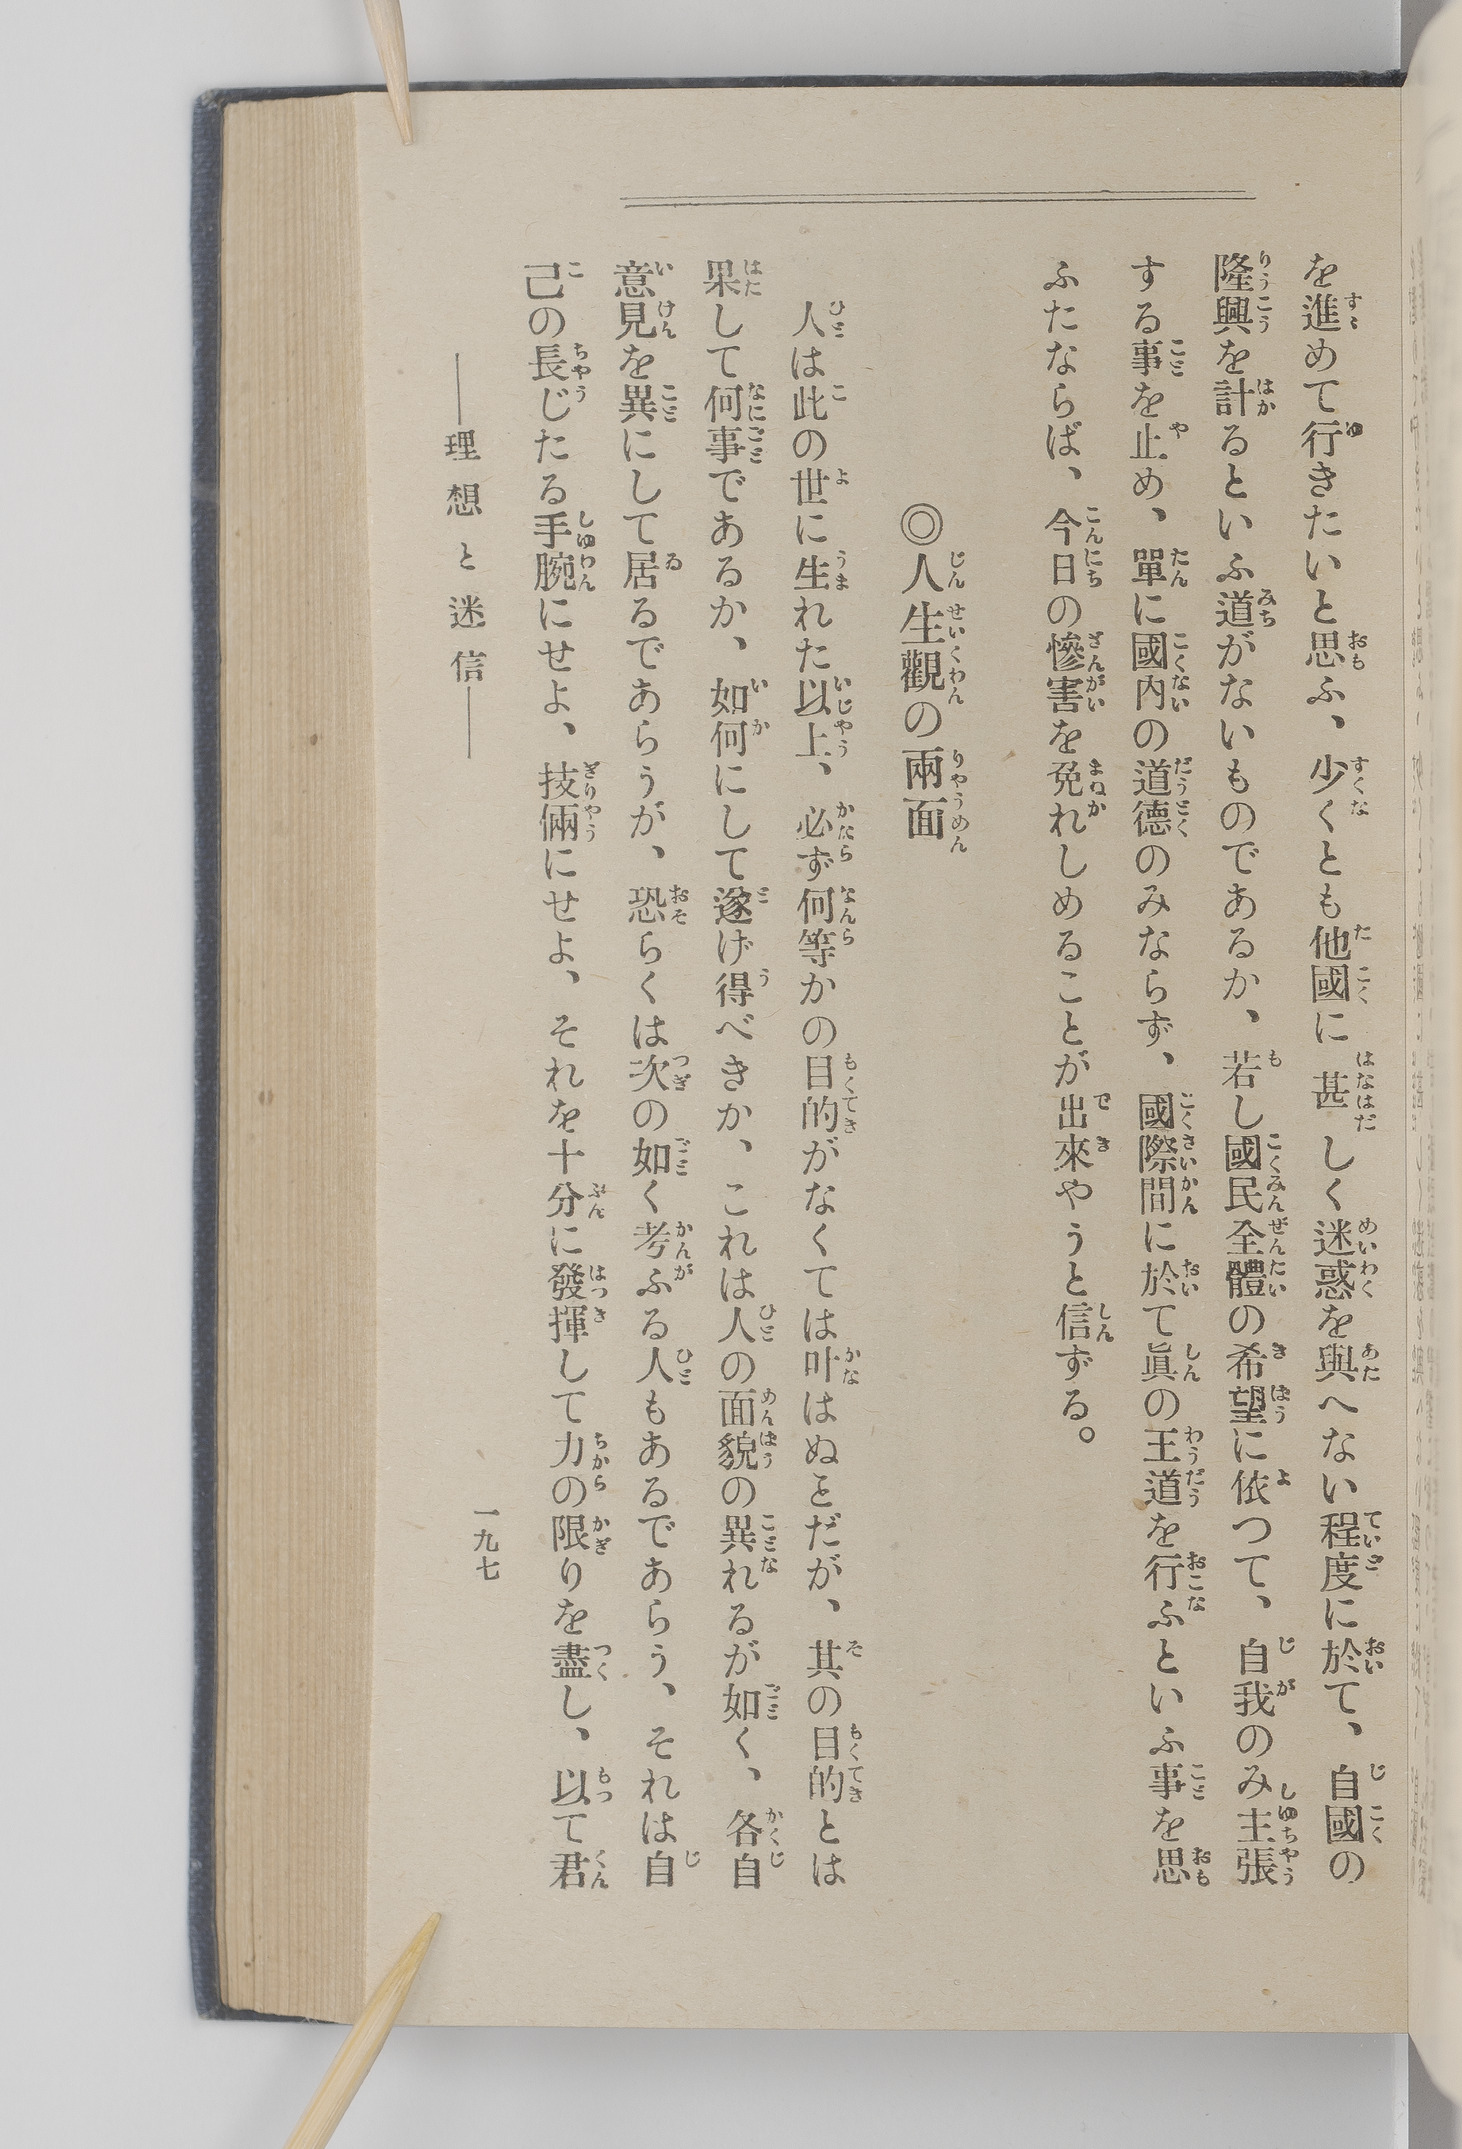 を進めて行きたいと思ふ、少くとも他國に甚しく迷惑を與へない程度に於て、自國の
隆興を計るといふ道がないものであるか、若し國民全體の希望に依つて、自我のみ主張
する事を止め、單に國內の道德のみならず、國際間に於て眞の王道を行ふといふ事を思
ふたならば、今日の慘害を免れしめることが出來やうと信ずる。
◎人生觀の兩面
人は此の世に生れた以上、必ず何等かの目的がなくては叶はぬことだが、其の目的とは
果して何事であるか、如何にして遂げ得べきか、これは人の面貌の異れるが如く、各自
意見を異にして居るであらうが、恐らくは次の如く考ふる人もあるであらう、それは自
己の長じたる手腕にせよ、技倆にせよ、それを十分に發揮して力の限りを盡し、以て君
――理想と迷信――
一九七